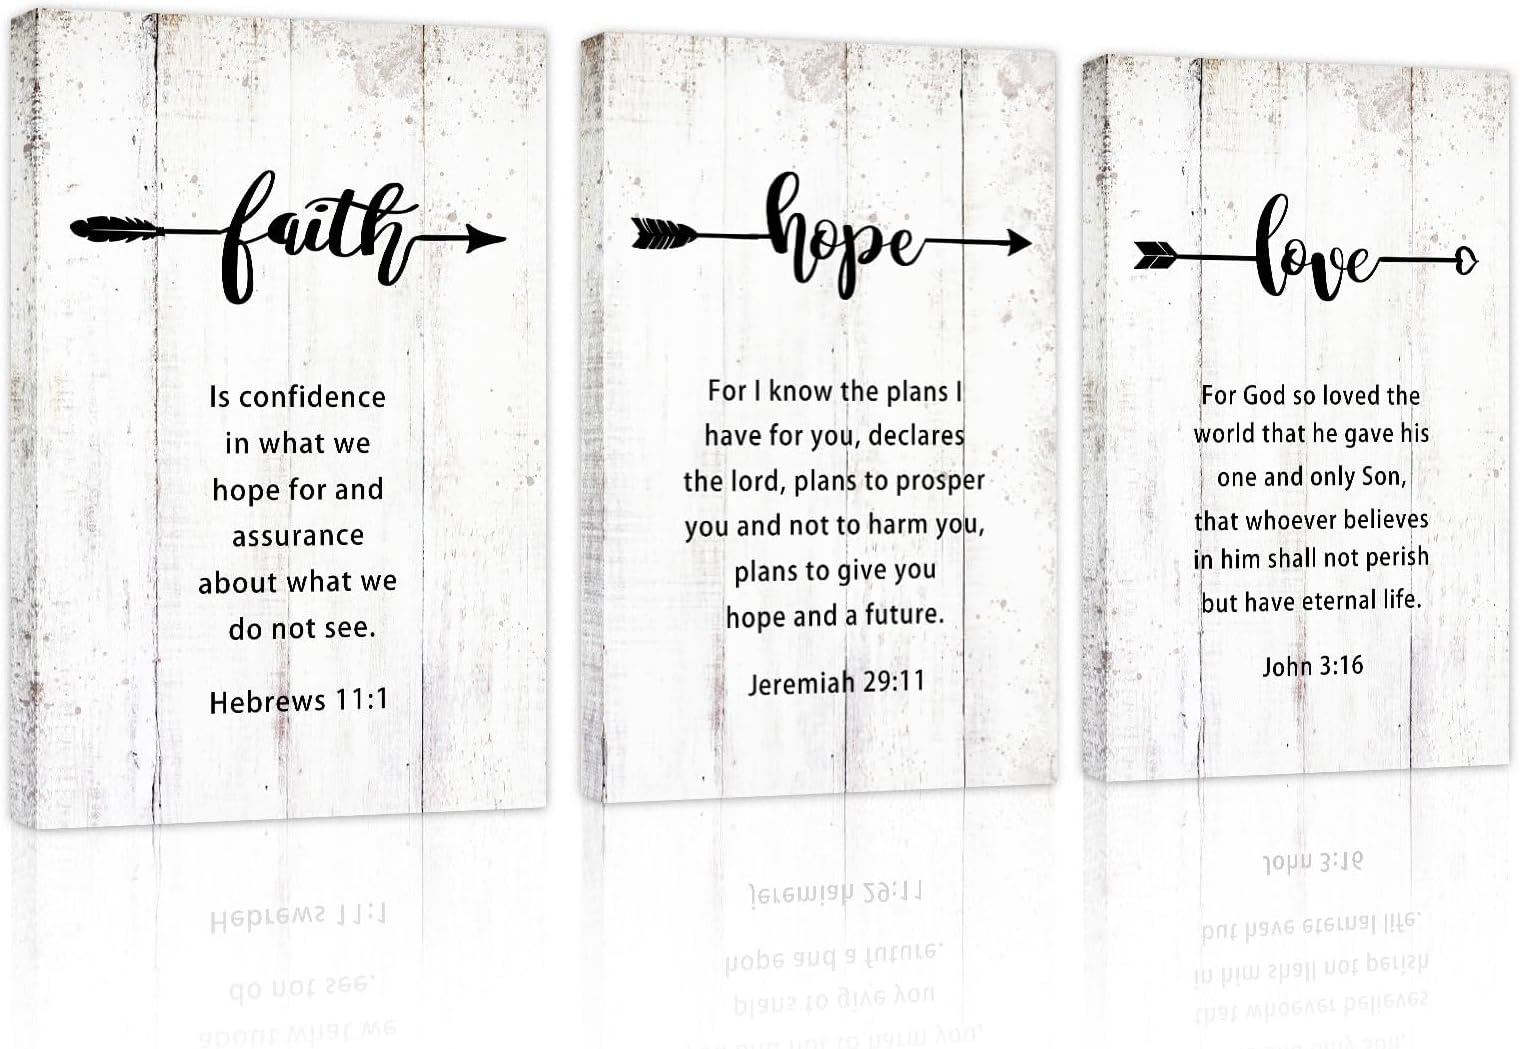 faith
Is confidence
in what we
hope for and
assurance
about what we
do not see.
Hebrews 11:1
hope
For I know the plans I
have for you, declares
the lord, plans to prosper
you and not to harm you,
plans to give you
hope and a future.
Jeremiah 29:11
love
For God so loved the
world that he gave his
one and only Son,
that whoever believes
in him shall not perish
but have eternal life.
John 3:16